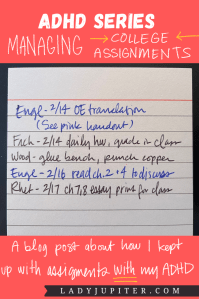 ADHD SERIES
MANAGING → COLLEGE ←
ASSIGNMENTS
Engl - 2/14 OE translation
(See pink handout)
Fech - 2/14 daily hw, grade in class
Wood - glue bench, punch copper
Engl - 2/16 read ch. 2 + 4 to discuss
Rhet - 2/17 ch 7, 8 essay prins for class
A blog post about how I kept
up with assignments with my ADHD
LADYJUPITER.COM